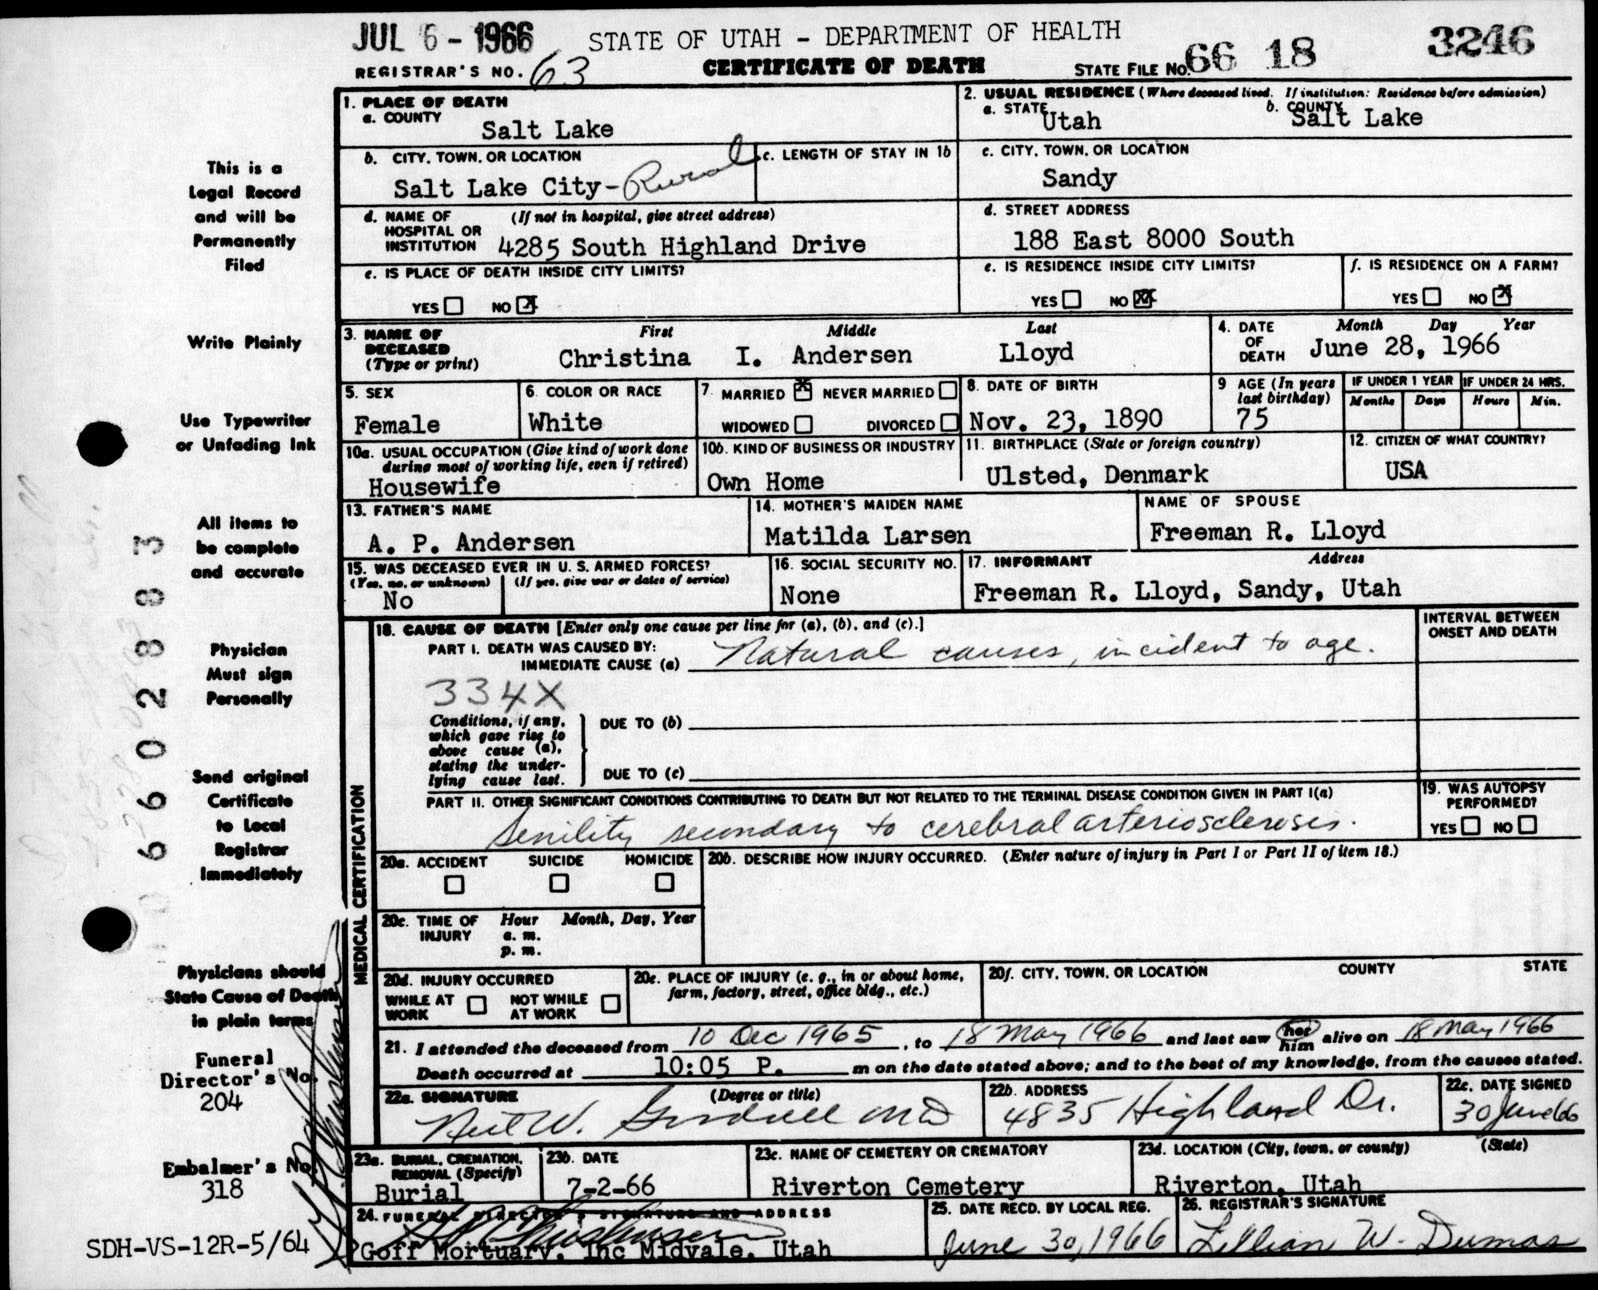 JUL 6 - 1966 STATE OF UTAH - DEPARTMENT OF HEALTH 3246
REGISTRAR'S NO. 63 CERTIFICATE OF DEATH STATE FILE NO. 66 18
1. PLACE OF DEATH
a. COUNTY
Salt Lake
2. USUAL RESIDENCE (Where deceased lived. If institution: Residence before admission)
a. STATE Utah b. COUNTY Salt Lake
b. CITY, TOWN, OR LOCATION
Salt Lake City-Rural
c. LENGTH OF STAY IN 1b
c. CITY, TOWN, OR LOCATION
Sandy
d. NAME OF HOSPITAL OR INSTITUTION (If not in hospital, give street address)
4285 South Highland Drive
d. STREET ADDRESS
188 East 8000 South
e. IS PLACE OF DEATH INSIDE CITY LIMITS?
YES NO X
e. IS RESIDENCE INSIDE CITY LIMITS?
YES NO XX
f. IS RESIDENCE ON A FARM?
YES NO X
3. NAME OF DECEASED (Type or print)
First Middle Last
Christina I. Andersen Lloyd
4. DATE OF DEATH
Month Day Year
June 28, 1966
5. SEX
Female
6. COLOR OR RACE
White
7. MARRIED X NEVER MARRIED
WIDOWED DIVORCED
8. DATE OF BIRTH
Nov. 23, 1890
9 AGE (In years last birthday)
75
IF UNDER 1 YEAR
Months Days
IF UNDER 24 HRS.
Hours Min.
10a. USUAL OCCUPATION (Give kind of work done
during most of working life, even if retired)
Housewife
10b. KIND OF BUSINESS OR INDUSTRY
Own Home
11. BIRTHPLACE (State or foreign country)
Ulsted, Denmark
12. CITIZEN OF WHAT COUNTRY?
USA
13. FATHER'S NAME
A. P. Andersen
14. MOTHER'S MAIDEN NAME
Matilda Larsen
NAME OF SPOUSE
Freeman R. Lloyd
15. WAS DECEASED EVER IN U. S. ARMED FORCES?
(Yes, no, or unknown) (If yes, give war or dates of service)
No
16. SOCIAL SECURITY NO.
None
17. INFORMANT Address
Freeman R. Lloyd, Sandy, Utah
MEDICAL CERTIFICATION
18. CAUSE OF DEATH [Enter only one cause per line for (a), (b), and (c).]
INTERVAL BETWEEN ONSET AND DEATH
PART I. DEATH WAS CAUSED BY:
IMMEDIATE CAUSE (a) Natural causes, incident to age.
334X
Conditions, if any,
which gave rise to
above cause (a),
stating the under-
lying cause last.
DUE TO (b)
DUE TO (c)
PART II. OTHER SIGNIFICANT CONDITIONS CONTRIBUTING TO DEATH BUT NOT RELATED TO THE TERMINAL DISEASE CONDITION GIVEN IN PART I(a)
Senility secondary to cerebral arteriosclerosis.
19. WAS AUTOPSY PERFORMED?
YES NO
20a. ACCIDENT SUICIDE HOMICIDE
20b. DESCRIBE HOW INJURY OCCURRED. (Enter nature of injury in Part I or Part II of item 18.)
20c. TIME OF INJURY
Hour Month, Day, Year
a. m.
p. m.
20d. INJURY OCCURRED
WHILE AT WORK NOT WHILE AT WORK
20e. PLACE OF INJURY (e. g., in or about home,
farm, factory, street, office bldg., etc.)
20f. CITY, TOWN, OR LOCATION COUNTY STATE
21. I attended the deceased from 10 Dec 1965, to 18 May 1966 and last saw her him alive on 18 May 1966
Death occurred at 10:05 P. m on the date stated above; and to the best of my knowledge, from the causes stated.
22a. SIGNATURE (Degree or title)
MD
22b. ADDRESS
4835 Highland Dr.
22c. DATE SIGNED
30 June 66
23a. BURIAL, CREMATION, REMOVAL (Specify)
Burial
23b. DATE
7-2-66
23c. NAME OF CEMETERY OR CREMATORY
Riverton Cemetery
23d. LOCATION (City, town, or county) (State)
Riverton, Utah
24. FUNERAL DIRECTOR'S SIGNATURE AND ADDRESS
Goff Mortuary, Inc Midvale, Utah
25. DATE RECD. BY LOCAL REG.
June 30, 1966
26. REGISTRAR'S SIGNATURE
Lillian W. Dumas
This is a
Legal Record
and will be
Permanently
Filed
Write Plainly
Use Typewriter
or Unfading Ink
All items to
be complete
and accurate
Physician
Must sign
Personally
Send original
Certificate
to Local
Registrar
Immediately
Physicians should
State Cause of Death
in plain terms
Funeral
Director's No.
204
Embalmer's No.
318
SDH-VS-12R-5/64
0 6 6 0 2 8 8 3